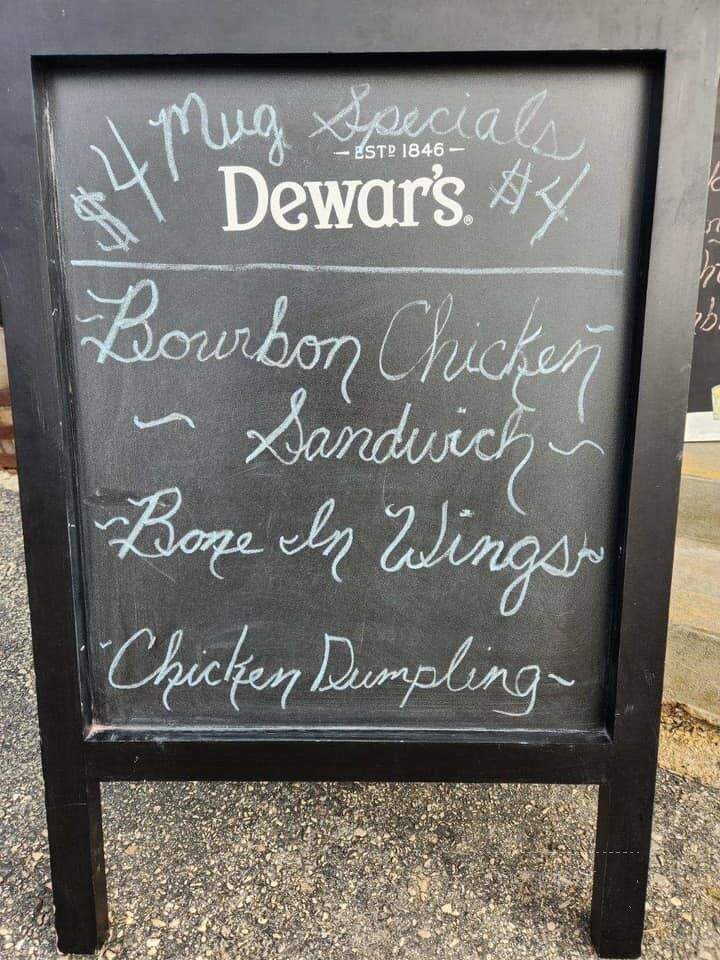 Mug Specials
$4 $4
ESTD 1846
Dewar's®
~Bourbon Chicken~
~ Sandwich ~
~Bone In Wings~
~Chicken Dumpling~